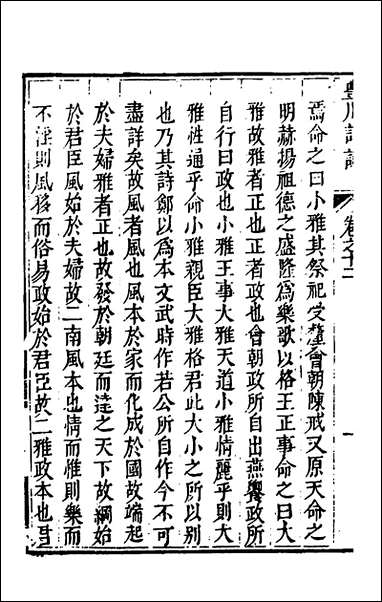 焉命之曰小雅其祭祀受釐會朝陳戒又原天命之
明赫揚祖德之盛隆為樂歌以格王正事命之曰大
雅故雅者正也正者政也會朝政所自出燕饗政所
自行曰政也小雅王事大雅天道小雅情麗乎則大
雅性通乎命小雅親臣大雅格君此大小之所以別
也乃其詩鄭以為本文武時作若公所自作今不可
盡詳矣故風者風也風本於家而化成於國故端起
於夫婦雅者正也故發於朝廷而達之天下故綱始
於君臣風始於夫婦故二南風本也情而惟則樂而
不淫則風移而俗易政始於君臣故二雅政本也君
豐川詩說
卷之十二
一